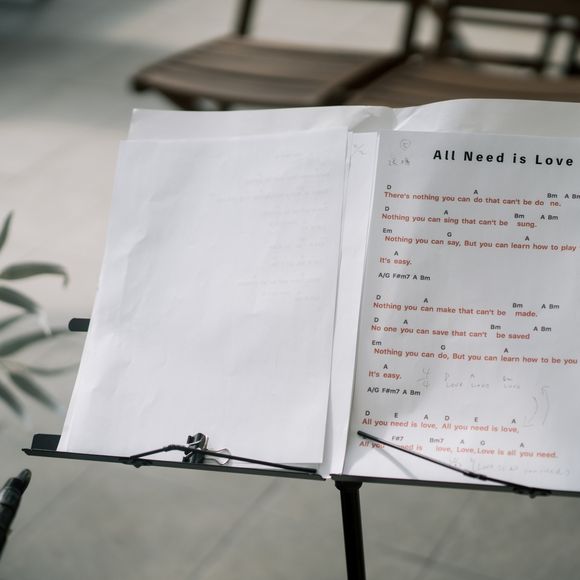 All Need is Love
D A Bm A Bm
There's nothing you can do that can't be do ne.
D A Bm A Bm
Nothing you can sing that can't be sung.
Em G A
Nothing you can say, But you can learn how to play
A
It's easy.
A/G F#m7 A Bm
D A Bm A Bm
Nothing you can make that can't be made.
D A Bm A Bm
No one you can save that can't be saved
Em G A
Nothing you can do, But you can learn how to be you
A
It's easy.
4/4 D A Bm
Love Love Love
A/G F#m7 A Bm
D E A D E A
All you need is love, All you need is love,
F#7 Bm7 A G A
All you need is love, Love, Love is all you need.